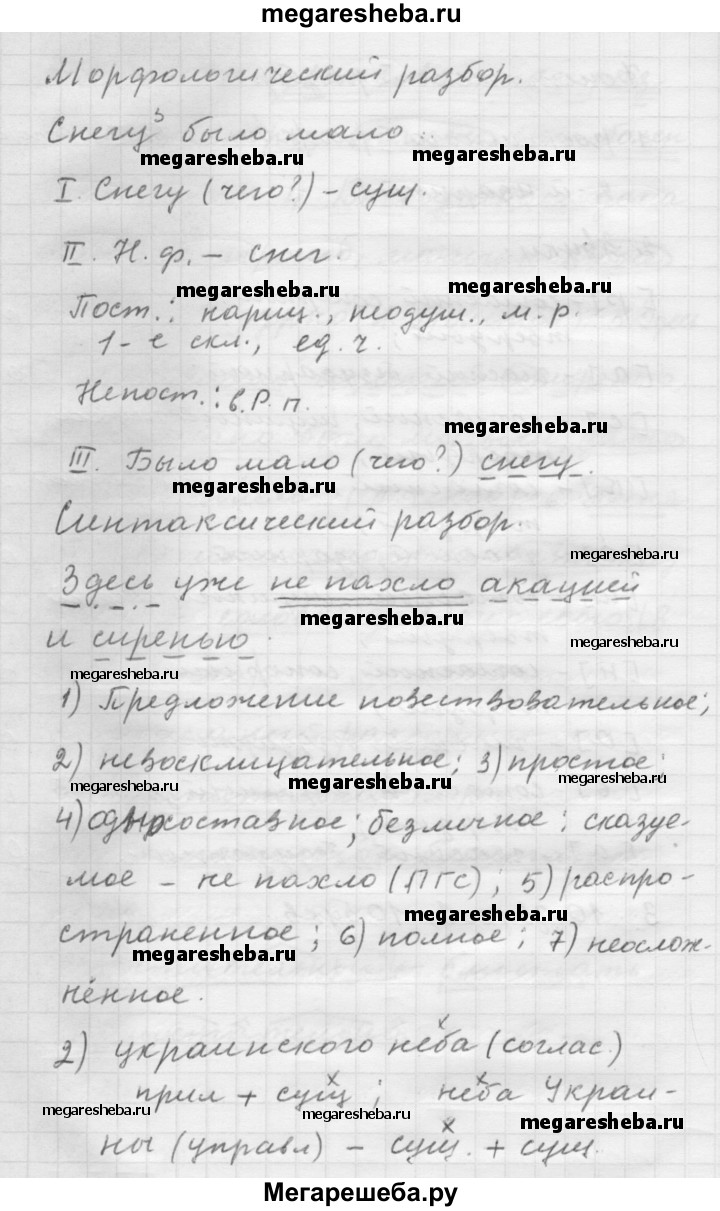 megaresheba.ru
Морфологический разбор.
Снегу³ было мало...
megaresheba.ru megaresheba.ru
I. Снегу (чего?) – сущ.
II. Н. ф. – снег.
megaresheba.ru megaresheba.ru
Пост.: нариц., неодуш., м. р.
1-е скл., ед. ч.
Непост.: в Р. п.
megaresheba.ru
III. Было мало (чего?) снегу.
megaresheba.ru
Синтаксический разбор.
megaresheba.ru
Здесь уже не пахло акацией
megaresheba.ru
и сиренью.
megaresheba.ru
megaresheba.ru
1) Предложение повествовательное;
2) невосклицательное; 3) простое;
megaresheba.ru megaresheba.ru
4) односоставное; безличное; сказуе-
мое – не пахло (ПГС); 5) распро-
megaresheba.ru
страненное; 6) полное; 7) неослож-
megaresheba.ru
нённое.
2) украинского неба (соглас.)
прил + сущ; неба Украи-
megaresheba.ru megaresheba.ru megaresheba.ru
ны (управл) – сущ. + сущ.
Мегарешеба.ру